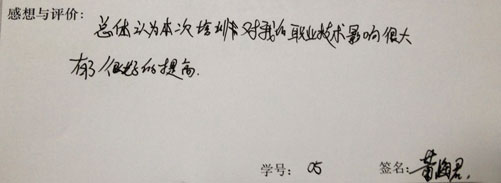 感想与评价:
总体认为本次培训带对我的职业技术影响很大
有了很好的提高.
学号: 05 签名: 黄海君.